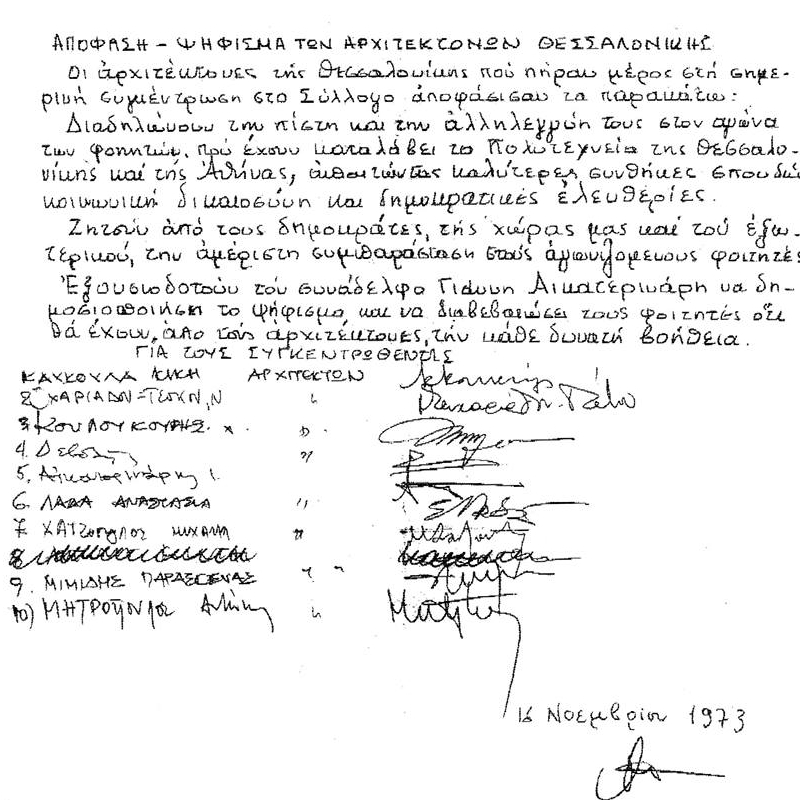 ΑΠΟΦΑΣΗ – ΨΗΦΙΣΜΑ ΤΩΝ ΑΡΧΙΤΕΚΤΟΝΩΝ ΘΕΣΣΑΛΟΝΙΚΗΣ
Οι ἀρχιτέκτονες τῆς Θεσσαλονίκης πού πῆραν μέρος στή σημε-
ρινή συγκέντρωση στο Σύλλογο ἀποφάσισαν τα παρακάτω:
Διαδηλώνουν την πίστη και την ἀλληλεγγύη τους στον αγώνα
των φοιτητών, πού έχουν καταλάβει το Πολυτεχνείο της Θεσσαλο-
νίκης καί τῆς Ἀθήνας, ἀπαιτώντας καλύτερες συνθήκες σπουδών
κοινωνική δικαιοσύνη και δημοκρατικές ἐλευθερίες.
Ζητούν ἀπό τους δημοκράτες, τῆς χώρας μας καί τοῦ ἐξω-
τερικού, την ἀμέριστη συμπαράσταση στούς ἀγωνιζομενους φοιτητές
Ἐξουσιοδοτούν τον συνάδελφο Γιάννη Αικατερινάρη να δη-
μοσιοποιήσει το ψήφισμα και να διαβεβαιώσει τους φοιτητές ὅτι
θά ἔχουν, ἀπο τούς ἀρχιτέκτονες, τήν κάθε δυνατή βοήθεια.
ΓΙΑ ΤΟΥΣ ΣΥΓΚΕΝΤΡΩΘΕΝΤΕΣ
ΚΑΥΚΟΥΛΑ ΑΡΧΙΤΕΚΤΩΝ
2
3 ΚΟΥΛΟΥΚΟΥΡΗΣ "
4. "
5. Αἰκατερινάρης Ι.
6. ΛΑΔΑ ΑΝΑΣΤΑΣΙΑ "
7. ΧΑΤΖόπουλος "
8
9. ΜΙΜΙΔΗΣ ΠΑΡΑΣΚΕΥΑΣ " "
10) ΜΗΤΡόπουλος "
16 Νοεμβρίου 1973